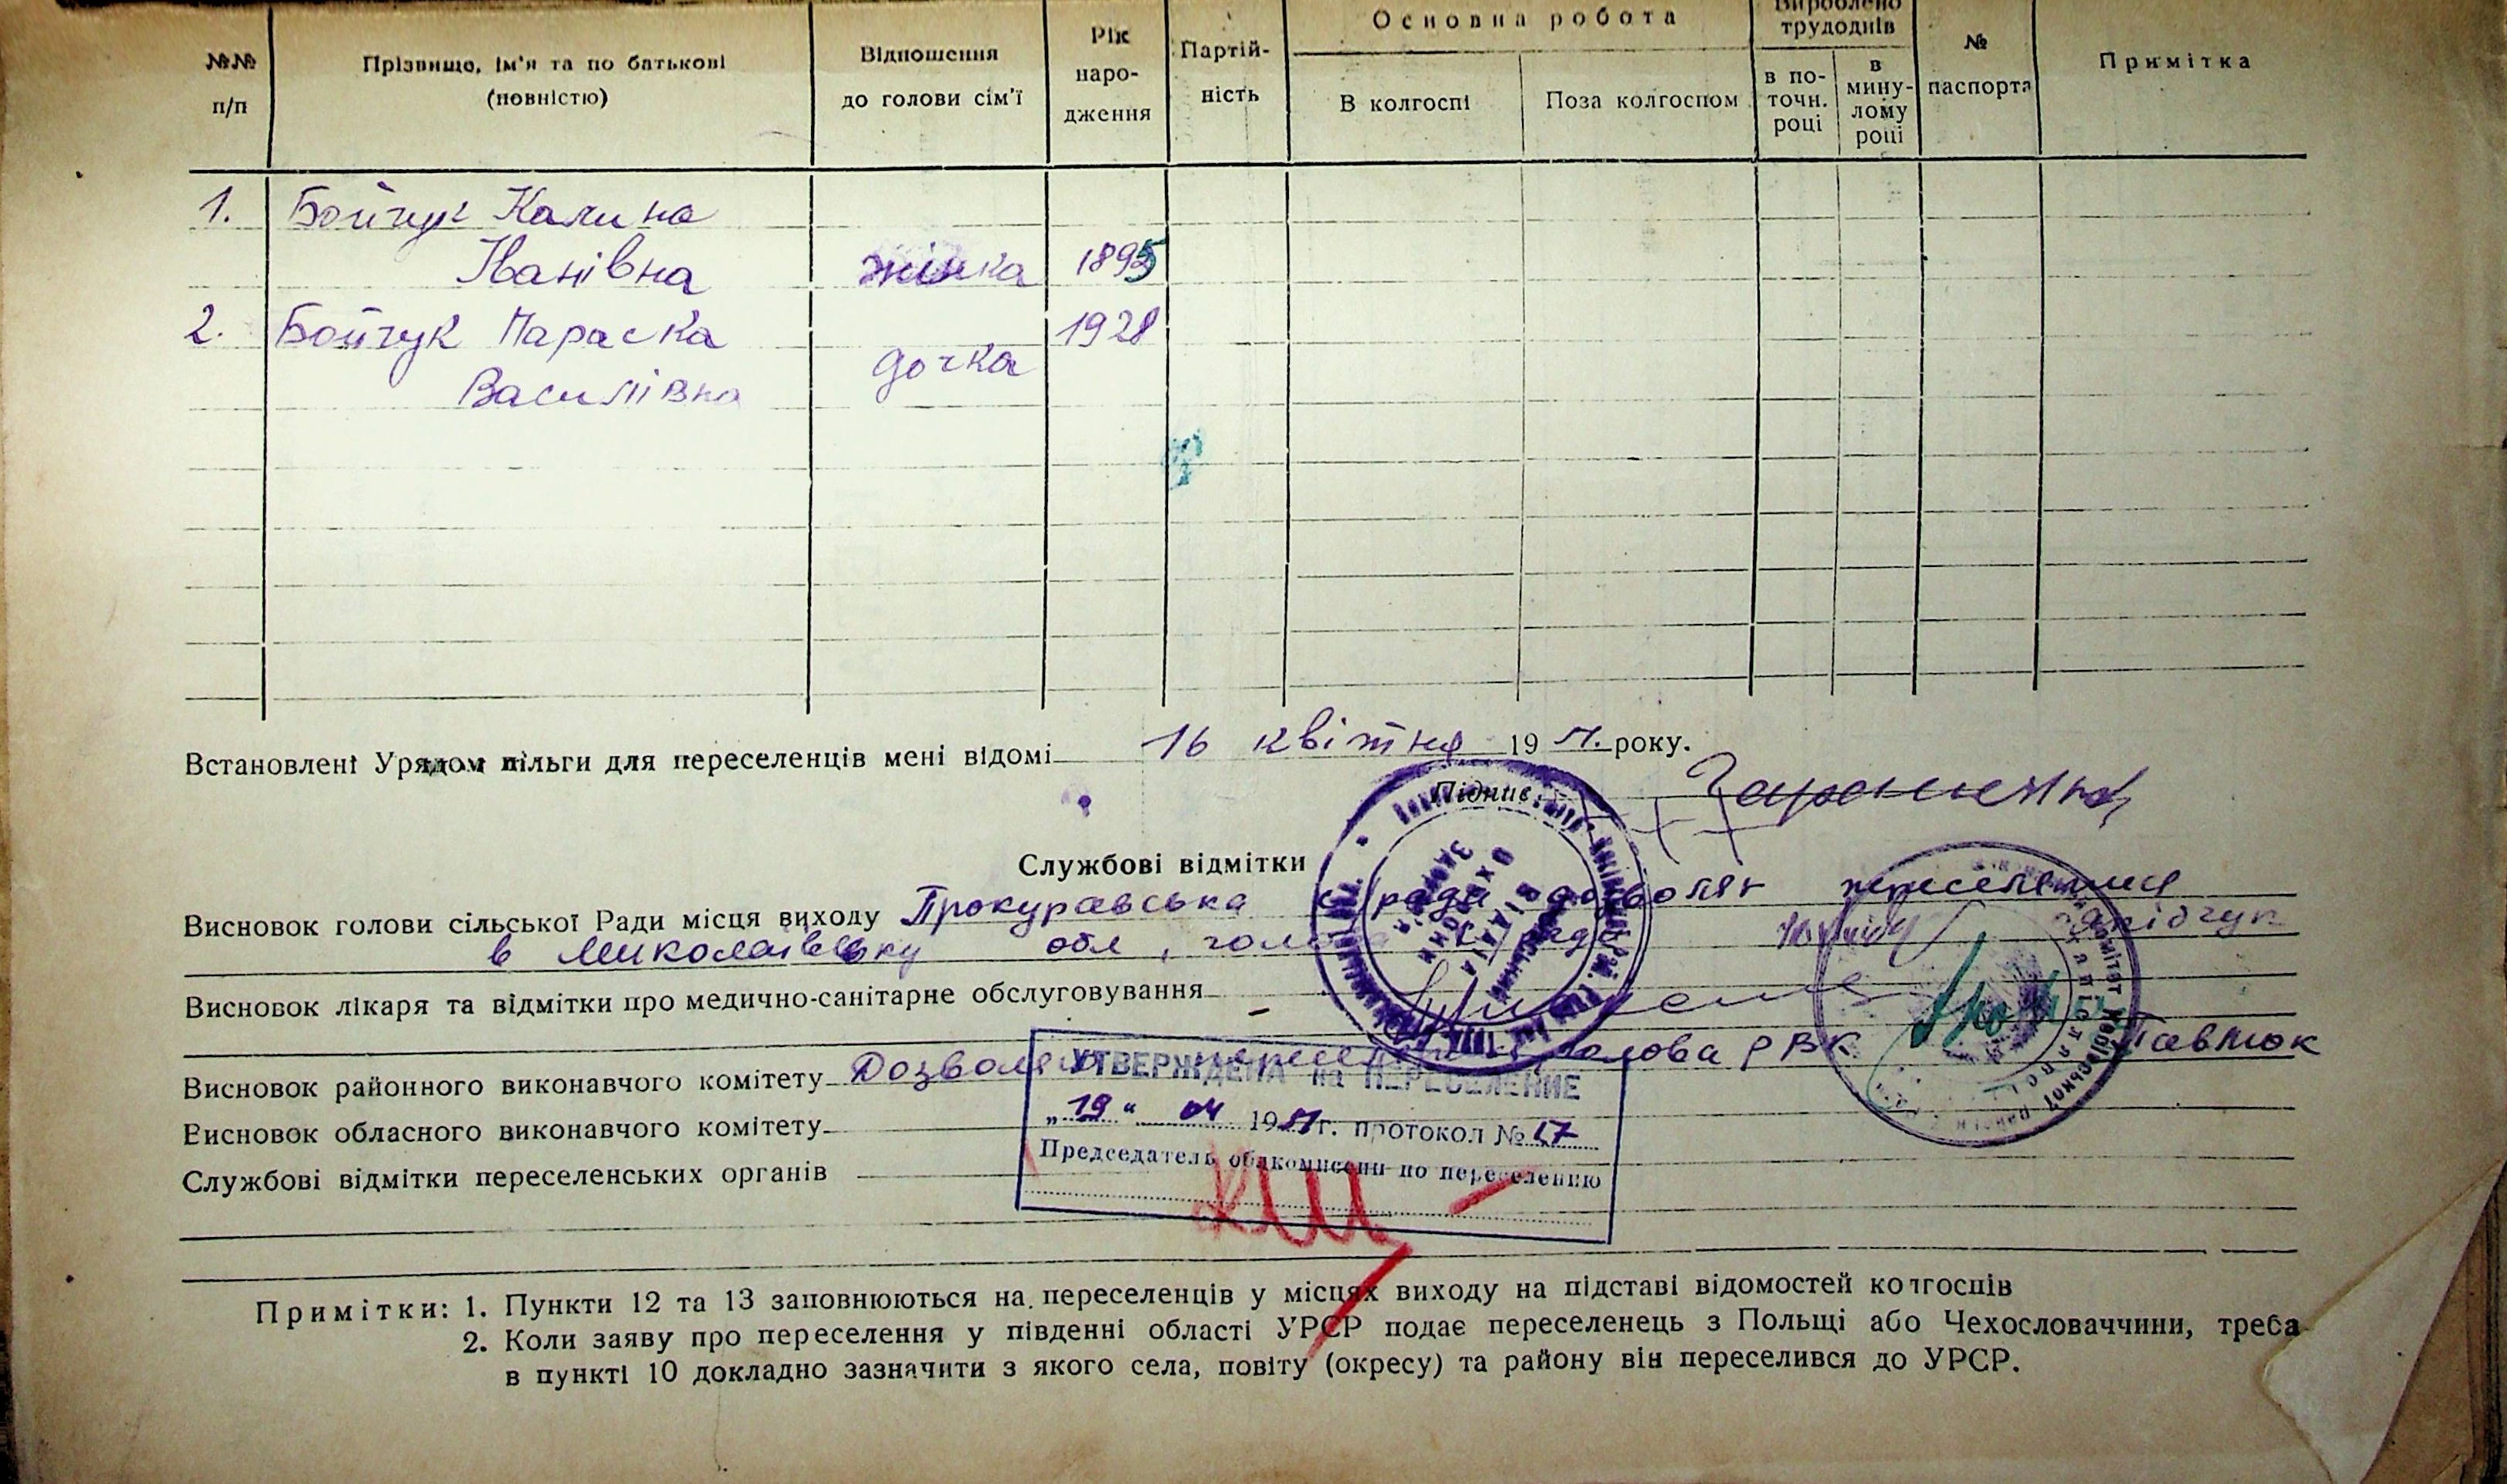 №№ п/п
Прізвище, ім'я та по батькові (повністю)
Відношення до голови сім'ї
Рік народження
Партій-
ність
Основна робота
В колгоспі
Поза колгоспом
Вироблено трудоднів
в по-
точн.
році
в
мину-
лому
році
№
паспорта
Примітка
1. Бойчук Калина
Іванівна жінка 1895
2. Бойчук Параска 1928
Василівна дочка
Встановлені Урядом пільги для переселенців мені відомі 16 квітня 1951. року.
Підпис:
Службові відмітки
Висновок голови сільської Ради місця виходу Прокуравська с/рада дозволяє переселитися
в Миколаївську обл, голова с/ради
Висновок лікаря та відмітки про медично-санітарне обслуговування
Висновок районного виконавчого комітету Дозволяє голова РВК Павлюк
УТВЕРЖДЕНА на ПЕРЕСЕЛЕНИЕ
„19“ 04 1951г. протокол № 17
Висновок обласного виконавчого комітету
Председатель облкомиссии по переселению
Службові відмітки переселенських органів
Примітки: 1. Пункти 12 та 13 заповнюються на переселенців у місцях виходу на підставі відомостей колгоспів
2. Коли заяву про переселення у південні області УРСР подає переселенець з Польщі або Чехословаччини, треба
в пункті 10 докладно зазначити з якого села, повіту (окресу) та району він переселився до УРСР.